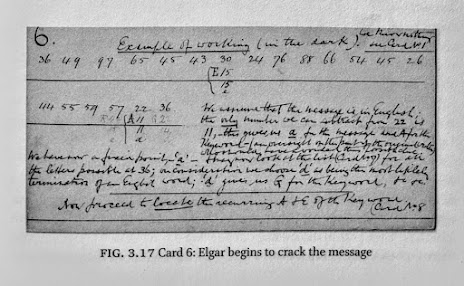 6. Example of working (in the dark). on Card No 1
36 49 97 65 45 43 30 24 76 88 66 54 45 26
E/15
15
44 55 59 57 22 36
A 11
11
a
We assume that the message is in English:
the only number we can subtract from 22 is
11, – this gives us a for the message and A for the
Keyword – (an oversight on the part of the
We have now a fixed point, 'a' – & we now look at the list (Card No ) for all
the letters possible at 36; on consideration we choose 'd' as being the most likely
termination of an English word; 'd' gives us G for the Keyword,
Now proceed to locate the recurring A & E of the Keyword
Card No 8
FIG. 3.17 Card 6: Elgar begins to crack the message